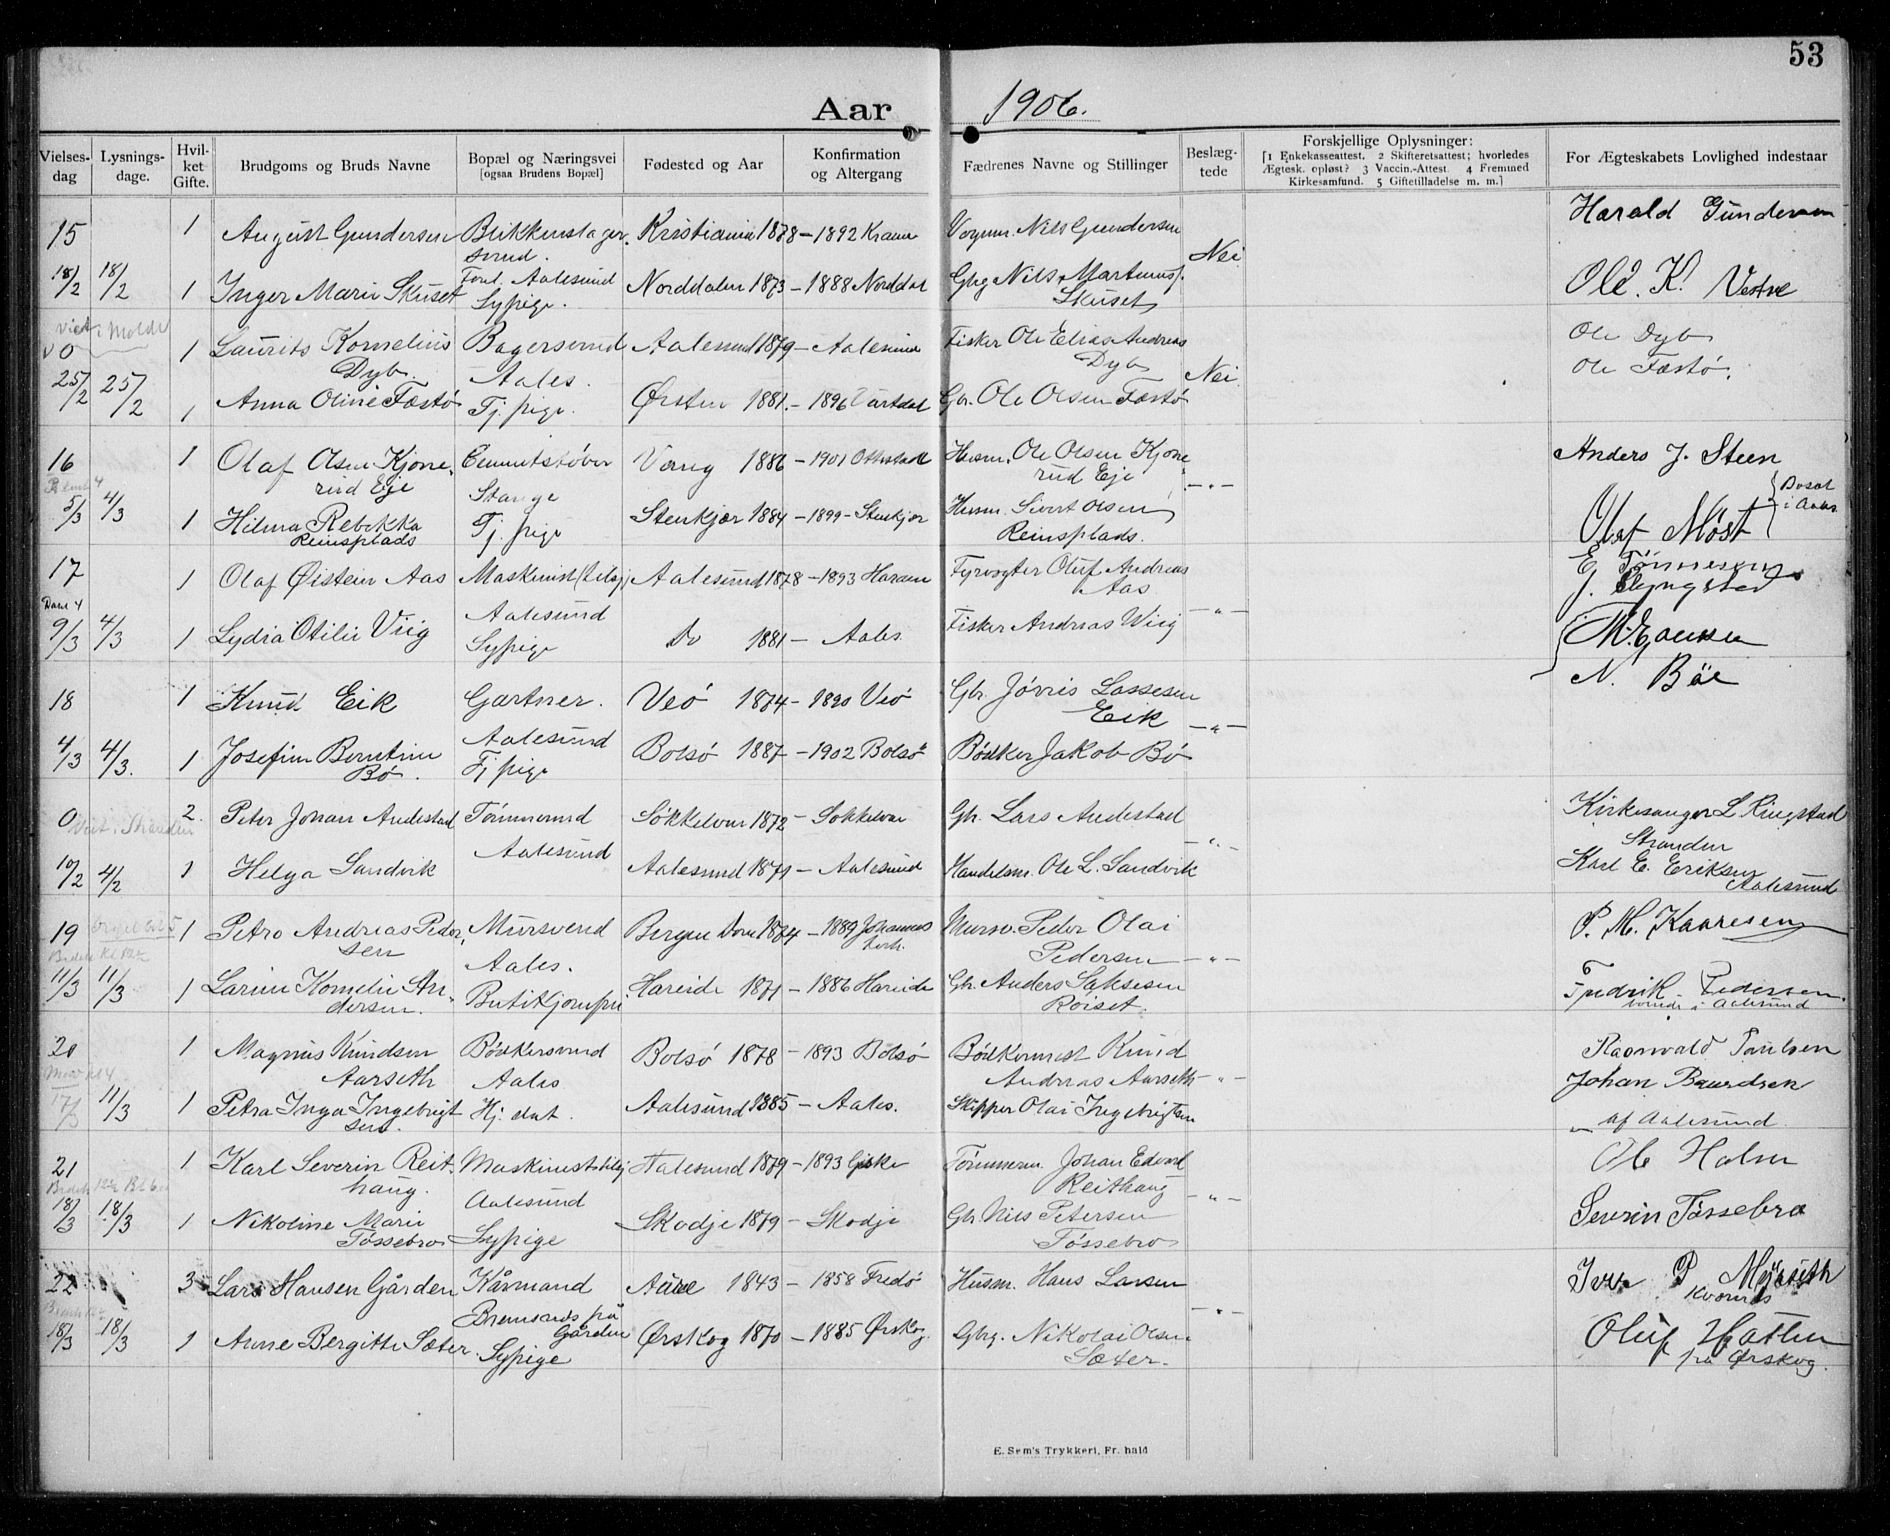 53
Aar 1906.
Vielses- dag Lysnings- dage. Hvil- ket Gifte. Brudgoms og Bruds Navne Bopæl og Næringsvei [ogsaa Brudens Bopæl] Fødested og Aar Konfirmation og Altergang Fædrenes Navne og Stillinger Beslæg- tede Forskjellige Oplysninger: [1 Enkekasseattest. 2 Skifteretsattest; hvorledes Ægtesk. opløst? 3 Vaccin.-Attest. 4 Fremmed Kirkesamfund. 5 Giftetilladelse m. m.] For Ægteskabets Lovlighed indestaar
15 1 August Gundersen Blikkenslager- Kristiania 1878 – 1892 Nils Gundersen Harald Gundersen
svend. Nei
18/2 18/2 1 Inger Marie Skuset Aalesund Norddalen 1873 – 1888 Norddal Gbrg Nils Martinus Ole. K. Vestre
Sypige. Skuset
Viet i Molde
0 1 Laurits Kornelius Bagersvend Aalesund 1879 – Aalesund Fisker Ole Elias Andreas Ole Dyb
Dyb. Aales. Dyb Nei Ole Fæstø.
25/2 25/2 1 Anna Oline Fæstø Tj. pige. Ørsten 1881. – 1896 Vartdal Gbr. Ole Olsen Fæstø
16 1 Olaf Olsen Kjone- Cementstøber Vang 1886 – 1901 Ottestad Husm. Ole Olsen Kjone- Anders J. Steen
rud Eje Stange rud Eje – " – Bosat i Aales
5/3 4/3 1 Hilma Rebekka Tj. pige Stenkjær 1884 – 1899 – Stenkjær Husm. Sivert Olsen Olaf Møst
Reinsplads Reinsplads.
17 1 Olaf Øistein Aas Maskinist Aalesund 1878 – 1893 Haram Fyrvogter Oluf Andreas E Tønnesen
Aalesund Aas J. Lyngstad
9/3 4/3 1 Lydia Otilie Viig Sypige Do 1881 – Aales. Fisker Andreas Wiig – " –
N. Bøe
18 1 Knud Eik Gartner. Veø 1874 – 1890 Veø Gbr. Jørris Lassesen
Aalesund Eik – " –
4/3 4/3. 1 Josefine Berntine Tj. pige Bolsø 1887 – 1902 Bolsø Bødker Jakob Bø
Bø.
0 2. Peter Johan Andestad Tømmermd Søkkelven 1872 – Søkkelven Gbr. Lars Andestad Kirkesanger L. Ringstad
Viet i Stranden Aalesund – " – Stranden
10/2 4/2 1 Helga Sandvik Aalesund 1871 – Aalesund Handelsm. Ole L. Sandvik Karl E. Eriksen
Aalesund
19 1 Petro Andreas Peder- Mursvend Bergen Dom 1874 – 1889 Johannes kirk. Mursv. Peder Olai P. M. Kaaresen
sen Aales. Pedersen – " –
11/3 11/3 1 Larine Kornelie An- Butikjomfru Hareide 1871 – 1886 Hareide Gbr. Anders Saksesen Fredrik Pedersen.
dersen. Røiset. boende i Aalesund
20 1 Magnus Knudsen Bødkersvend Bolsø 1878 – 1893 Bolsø Bødkermest Knud Ragnvald Paulsen
Aarseth Aales Andreas Aarseth – " – Johan Baardsen
17/3 11/3 1 Petra Inga Ingebrigt- Hj. dat. Aalesund 1885 – Aales. Skipper Olai Ingebrigtsen af Aalesund
sen.
21 1 Karl Severin Reit- Maskinist Aalesund 1879 – 1893 Giske Tømmerm. Johan Edvard Ole Holm
haug. Aalesund Reithaug – " –
18/3 18/3 1 Nikoline Marie Sypige Skodje 1879 – Skodje Gbr Nils Petersen Severin Tøssebro
Tøssebro Tøssebro
22 3 Lars Hansen Gården Kårmand Aure 1843 – 1858 Fredø Husm. Hans Larsen Iver P Mjøseth
Bremsnes på Gården – " – Kvernes
18/3 18/3 1 Anne Bergitte Sæter. Sypige Ørskog 1870 – 1885 Ørskog Gbrg. Nikolai Olsen Oluf Hatlen
Sæter. fra Ørskog.
E. Sem's Trykkeri, Fr. hald